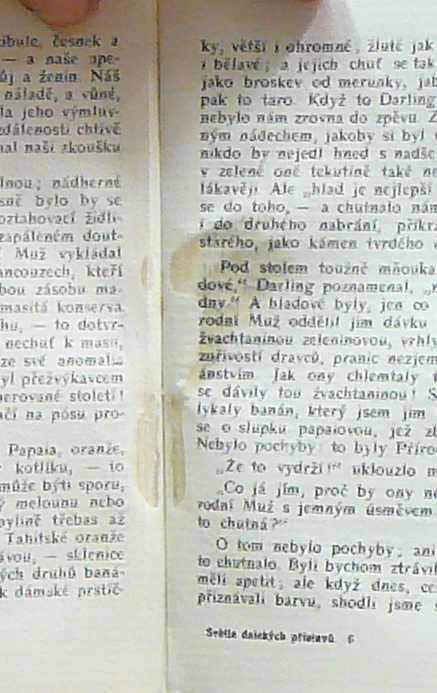 cibule, česnek a
— a naše spe-
můj a ženin. Náš
náladě, a vůně,
la jeho výmluv-
zdálenosti chtivě
nal naši zkoušku
nádherné
sně bylo by se
roztahovací židli-
zapáleném dout-
Muž vykládal
ancouzech, kteří
bou zásobu ma-
masitá konserva
hu, — to dotvr-
nechuť k masu,
ze své anomalie
yl přežvýkavcem
perované století!
čí na pósu pro-
Papaia, oranže,
kotlíku, — to
může býti sporu,
melounu nebo
bylině třebas až
Tahitské oranže
ávou, — sklenice
ých druhů baná-
k dámské prstíč-
ky, větší i ohromné, žluté jak
i bělavé; a jejich chuť se tak
jako broskev od merunky, jab
pak to taro. Když to Darling
nebylo nám zrovna do zpěvu. Z
ným nádechem, jakoby si byl v
nikdo by nejedl hned s nadše
v zelené oné tekutině také ne
lákavěji. Ale „hlad je nejlepší
se do toho, — a chutnalo nám
i do druhého nabrání, přikra
starého, jako kámen tvrdého
Pod stolem toužně mňouka
dové,“ Darling poznamenal, „n
dny.“ A hladové byly, jen co
rodní Muž oddělil jim dávku
žvachtaninou zeleninovou, vrhly
zuřivostí dravců, pranic nezjem
ánstvím. Jak ony chlemtaly
se dávily tou žvachtaninou! S
lykaly banán, který jsem jim
se o slupku papaiovou, jež zb
Nebylo pochyby: to byly Příro
„Že to vydrží!“ uklouzlo m
„Co já jím, proč by ony ne
rodní Muž s jemným úsměvem
to chutná?“
O tom nebylo pochyby; ani
to chutnalo. Byli bychom ztrávil
měli apetit; ale když dnes, ce
přiznávali barvu, shodli jsme s
Světla dalekých přístavů. 6